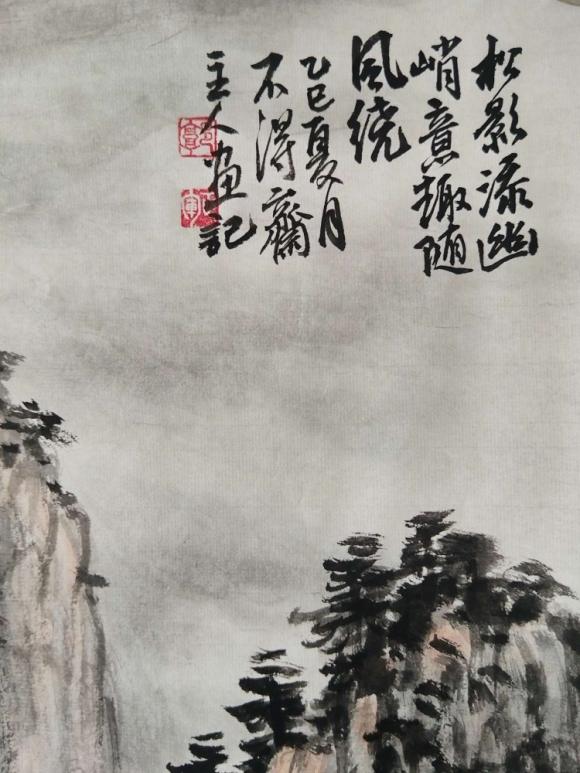 松影添幽
峭意趣随
风绕
乙巳夏月
不得齋
主人画记